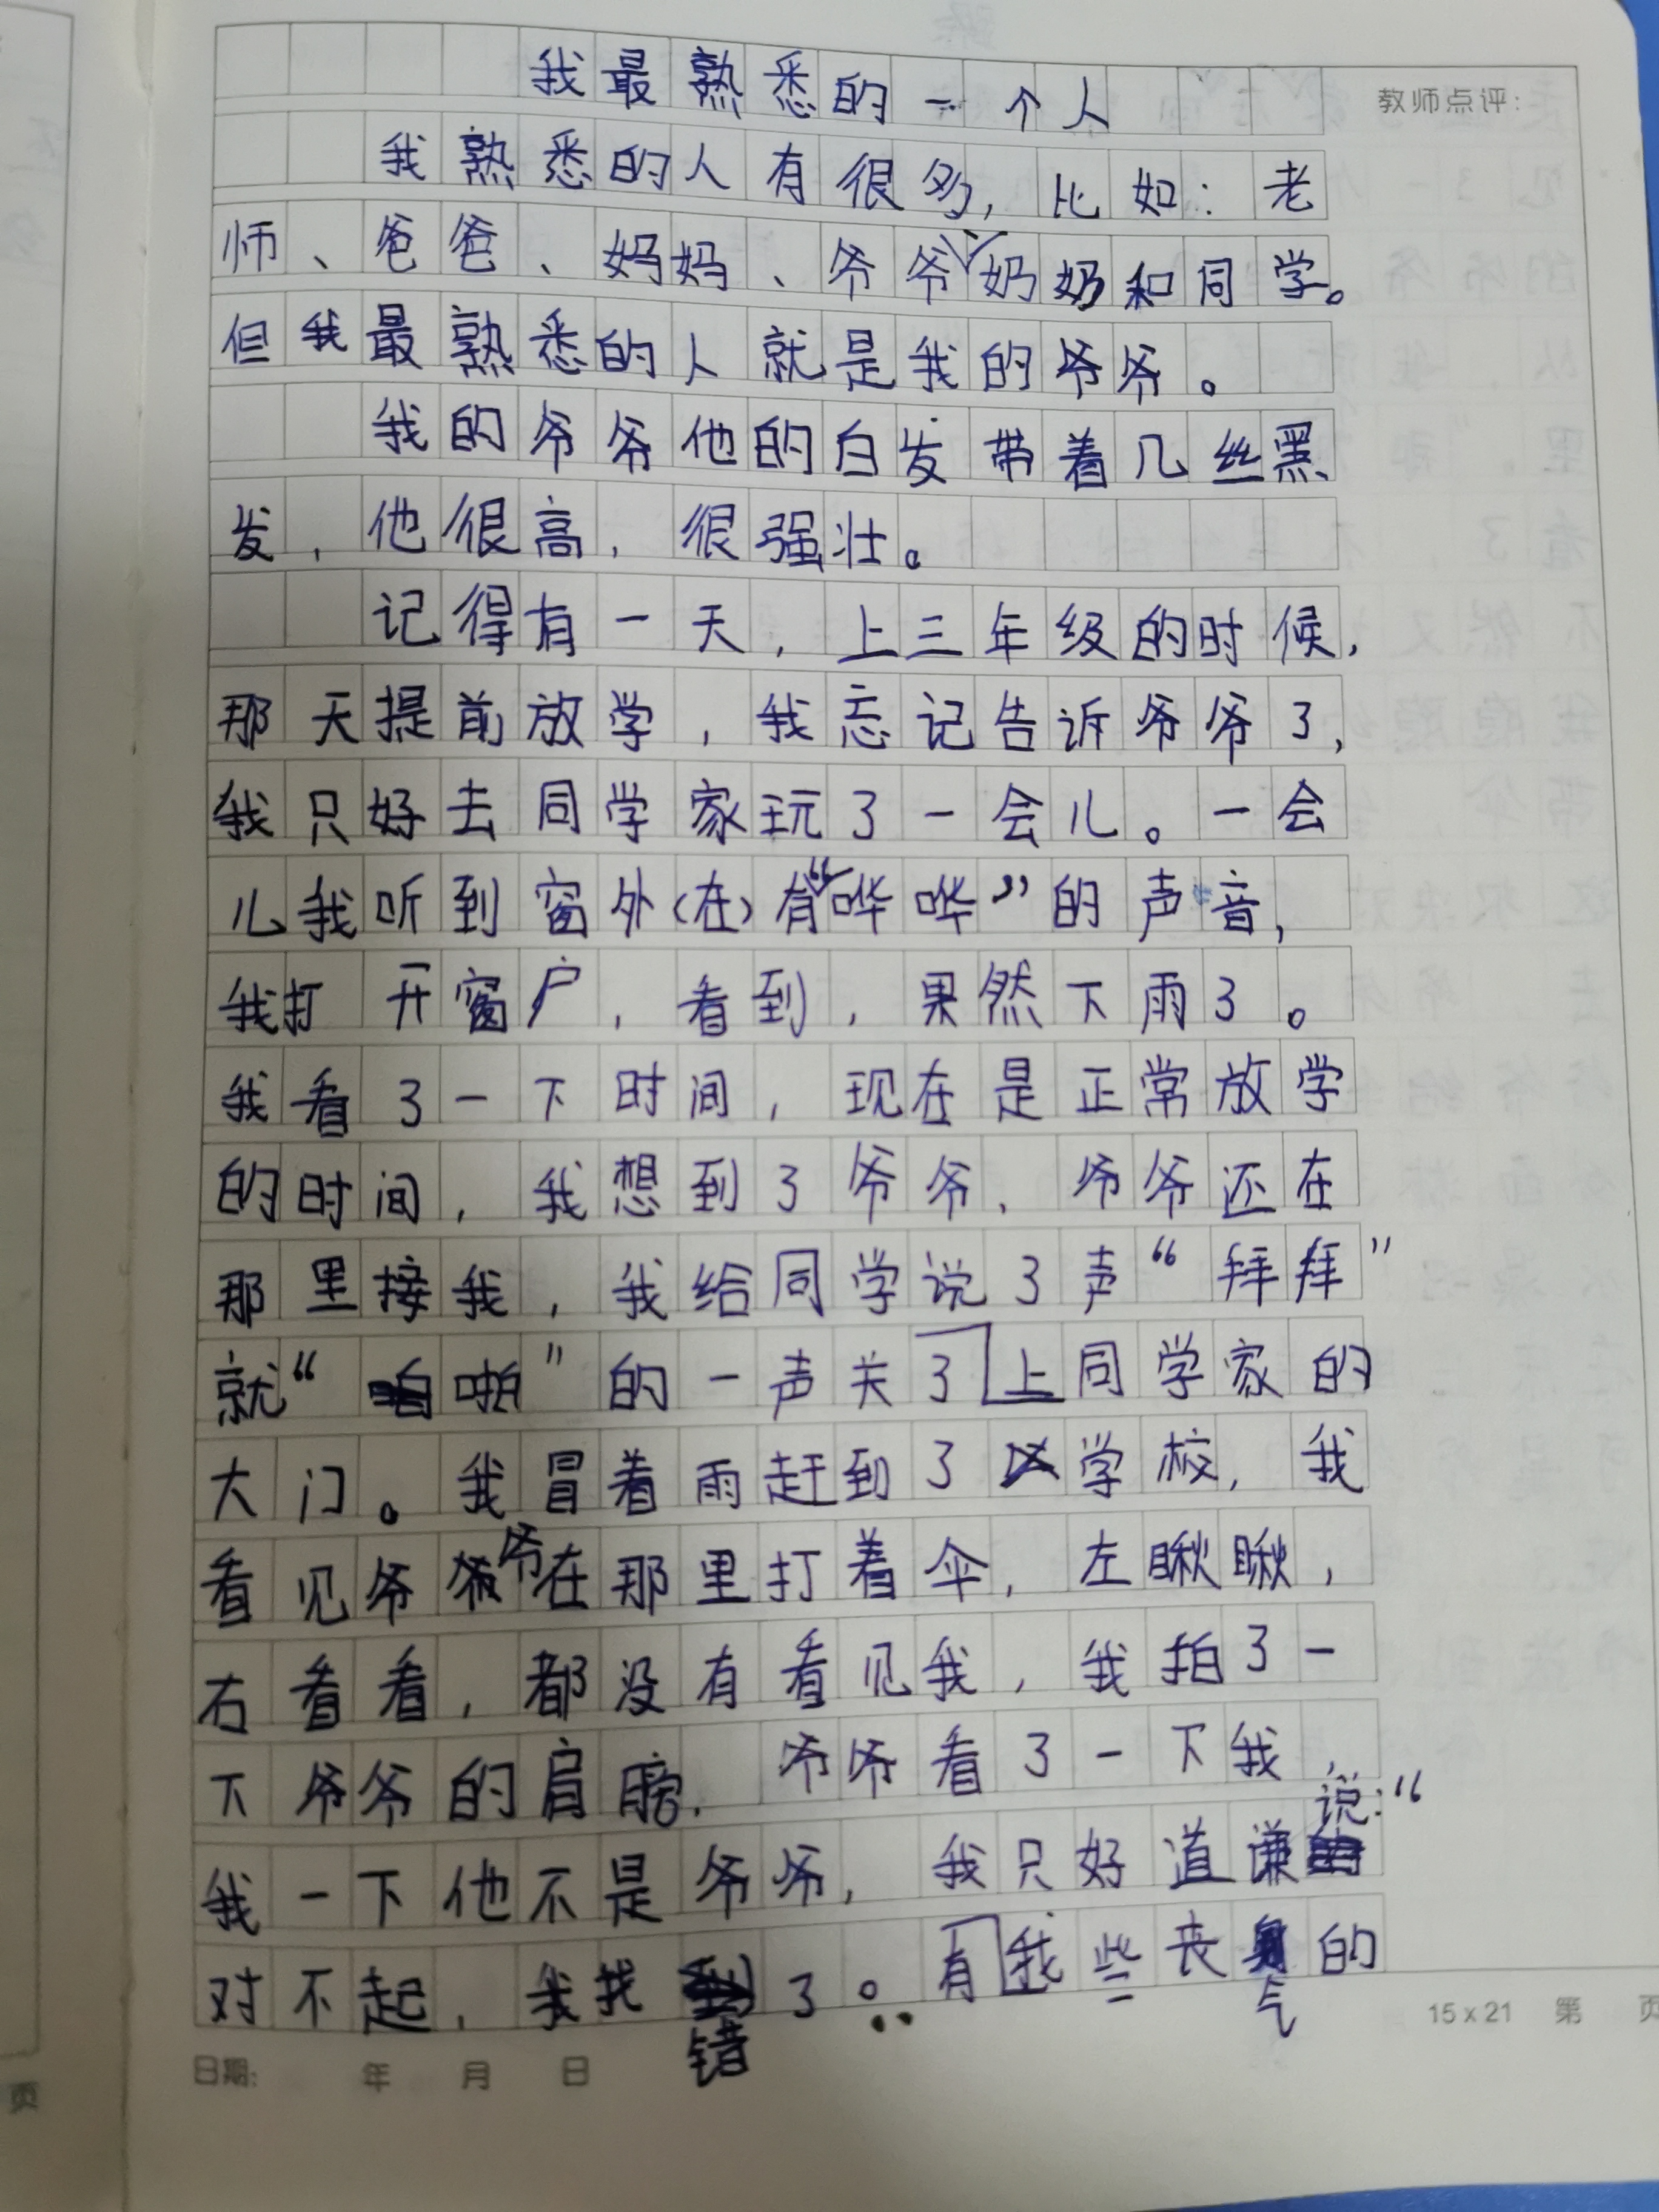 我最熟悉的一个人
教师点评:
我熟悉的人有很多,比如:老
师、爸爸、妈妈、爷爷、奶奶和同学。
但我最熟悉的人就是我的爷爷。
我的爷爷他的白发带着几丝黑
发,他很高,很强壮。
记得有一天,上三年级的时候,
那天提前放学,我忘记告诉爷爷了,
我只好去同学家玩了一会儿。一会
儿我听到窗外(在)有“哗哗”的声音,
我打开窗户,看到,果然下雨了。
我看了一下时间,现在是正常放学
的时间,我想到了爷爷,爷爷还在
那里接我,我给同学说了声“拜拜”
就“啪”的一声关了上同学家的
大门。我冒着雨赶到了学校,我
看见爷爷在那里打着伞,左瞅瞅,
右看看,都没有看见我,我拍了一
下爷爷的肩膀,爷爷看了一下我,
我一下他不是爷爷,我只好道谦说:“
对不起,我找错了。”有我些丧气的
15x21 第 页
日期: 年 月 日
页